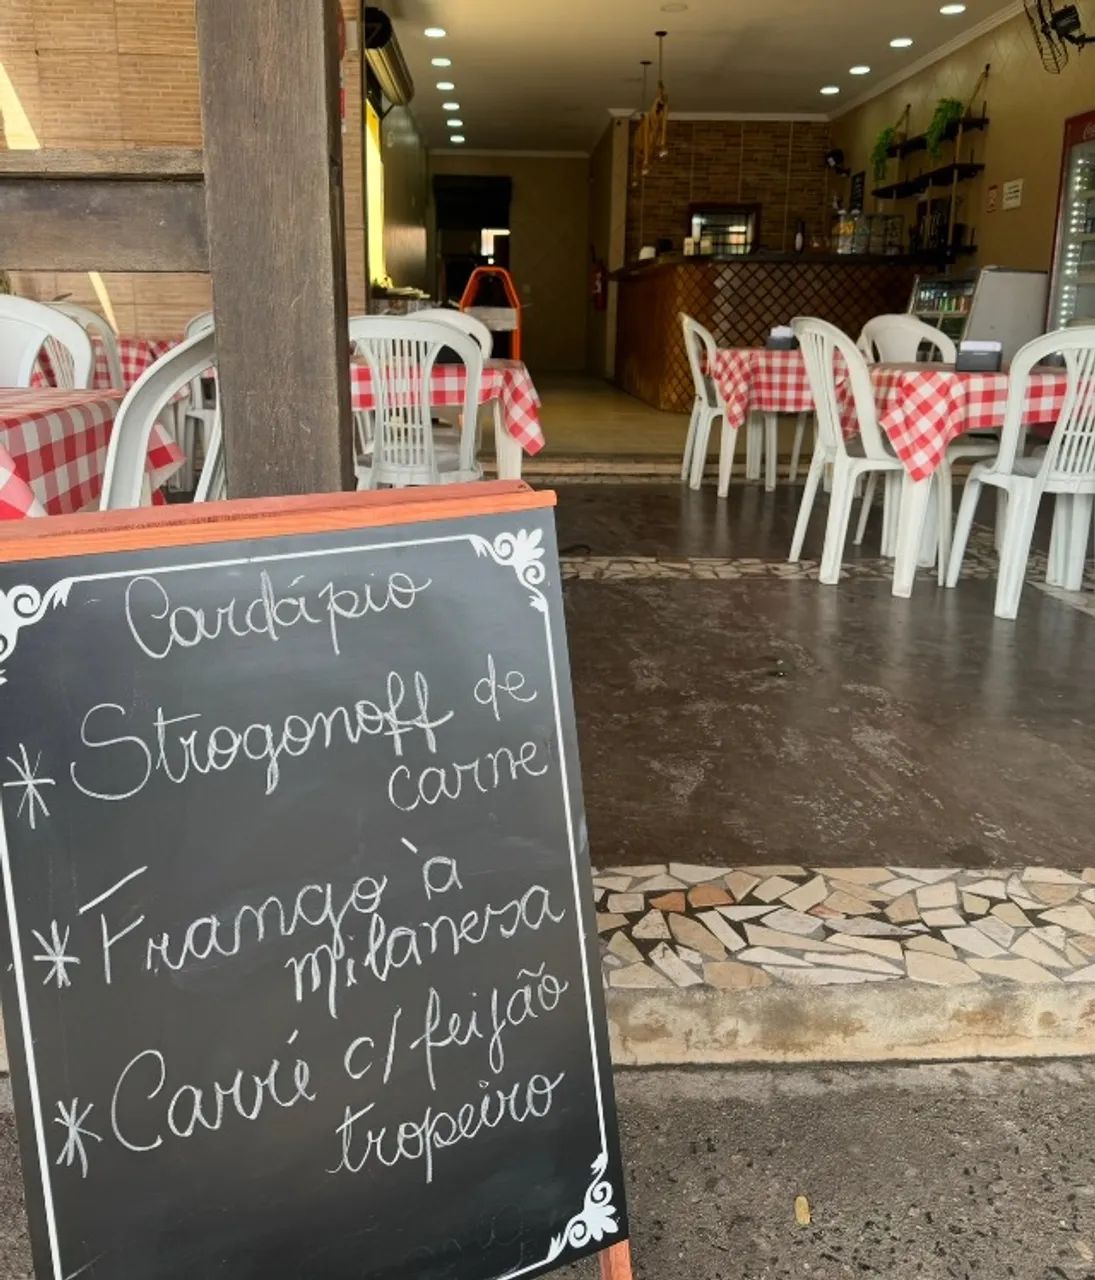 Cardápio
* Strogonoff de
carne
* Frango à
milanesa
* Carré c/ feijão
tropeiro